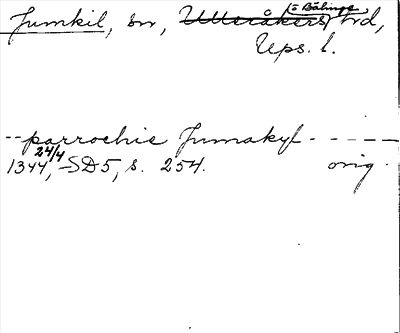 Jumkil, sn, Ulleråkers (o Bälinge) hd,
Ups. l.
-- parrochie Jumakyl - - - - -
24/4
1344, SD5, s. 254. orig.